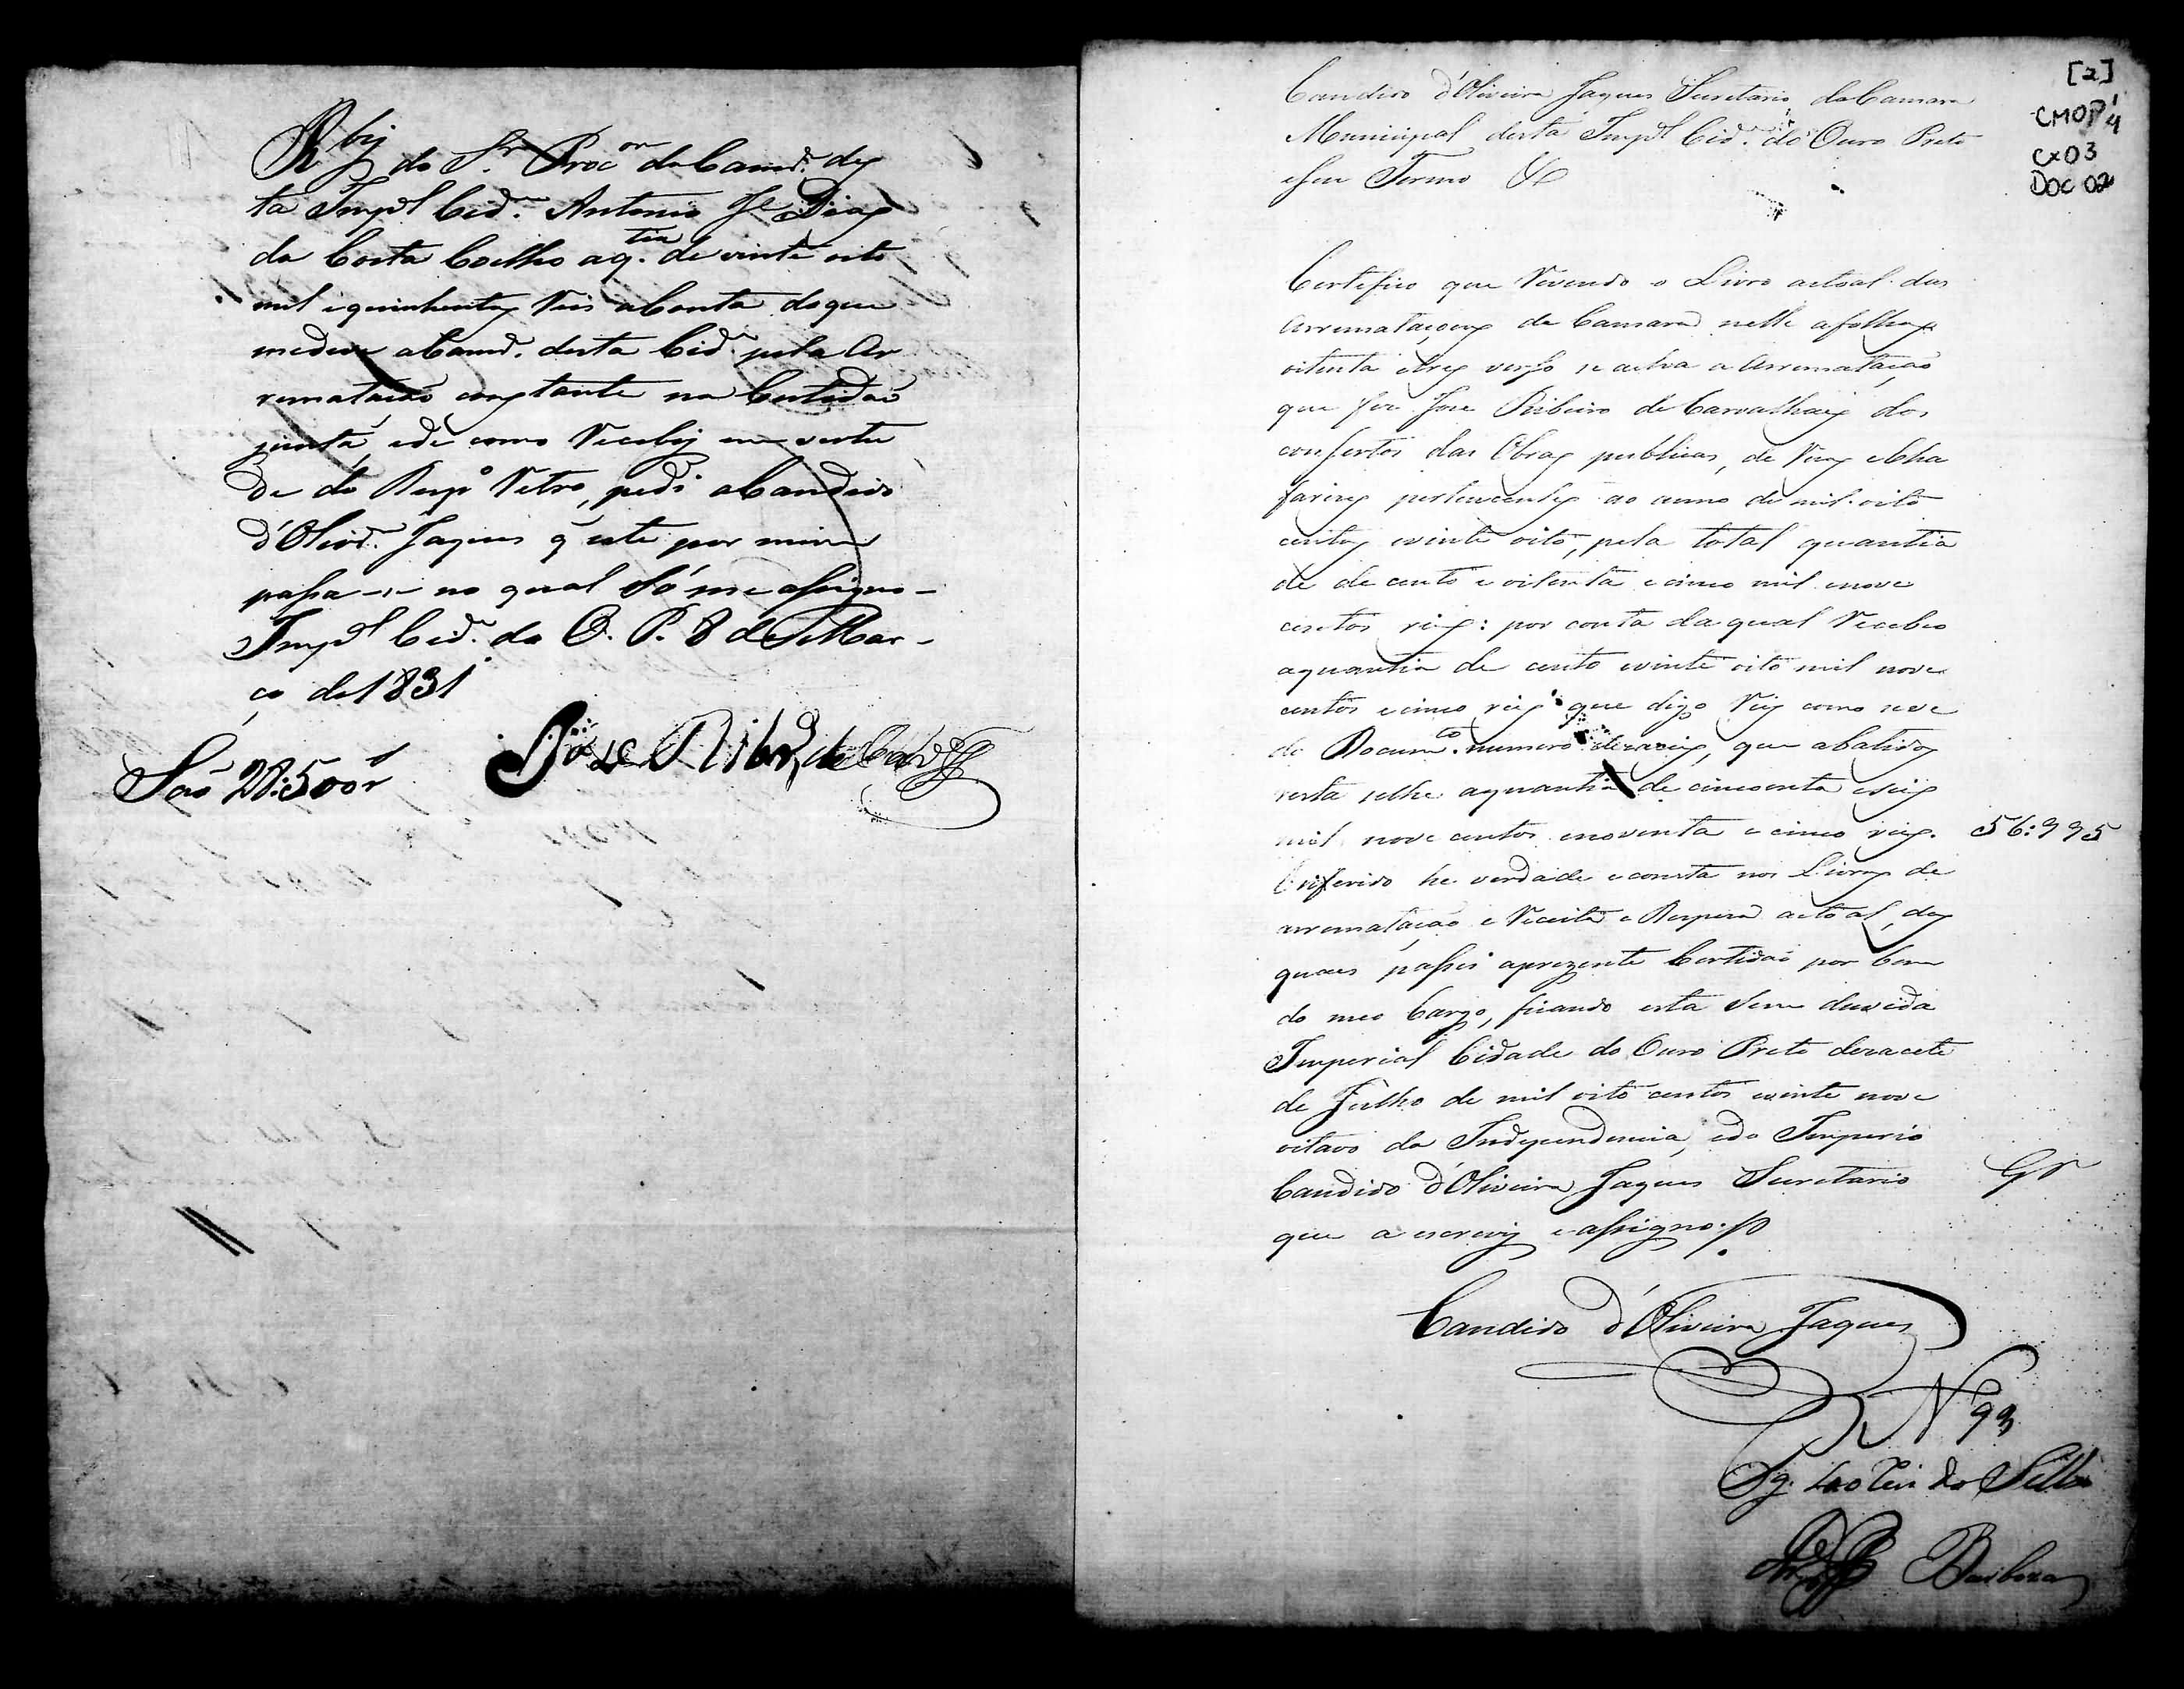 Rbij do Sr. Procor da Camrª. des
ta Impal Cidᵉ. Antonio Jᵉ Dias
da Costa Coelho a q.tia de vinte oito
mil e quinhentos reis a conta do que
me deve a Camrª. desta Cidᵉ. pela Ar
rematacaõ constante na Certidaõ
junta, e de como Recebij em verda
de do Resp.º Retro, pedi a Candido
d'Olivrª. Jaques q̃ este por mim
passa-se no qual só me assigno-
Impal Cidᵉ. do O. P. 8 de Mar-
ço de 1831
Saõ 28:500r
Jose Ribrº de Carvᵒˢ
[2]
CMOP 1/4
CX03
DOC 02
Candido d'Oliveira Jaques Secretario da Camara
Municipal desta Impal Cidᵉ. do Ouro Preto
e seu Termo &
Certefico que revendo o Livro actoal das
Arremataçoens da Camara nelle a folhas
oitenta e tres verso se acha a Arremataçaõ
que fes Jose Ribeiro de Carvalhaes dos
confertos das Obras publicas, de Ruas e Cha
farizes pertencentes ao anno de mil oito
centos evinte oito, pela total quantia
de de cento e oitenta e cinco mil e nove
centos reis: por conta da qual Recebeo
a quantia de cento evinte oito mil nove
centos e cinco reis que digo Reis como se ve
do Docum.to numero que abatidos
resta selhe a quantia de cincoenta e seis
mil nove centos e noventa e cinco reis. 56:995
O referido he verdade e consta nos Livros de
arremataçaõ e Receita e Despeza actoal, dos
quaes passei a prezente Certidaõ por bem
do meo Cargo, ficando esta sem duvida
Imperial Cidade do Ouro Preto dezacete
de Julho de mil oito centos evinte nove
oitavo da Independencia, e do Imperio
Candido d'Oliveira Jaques Secretario
que a escrevij e assigno.
Candido d'Oliveira Jaques
N 93
Pg. 40 reis do Sello
Barboza